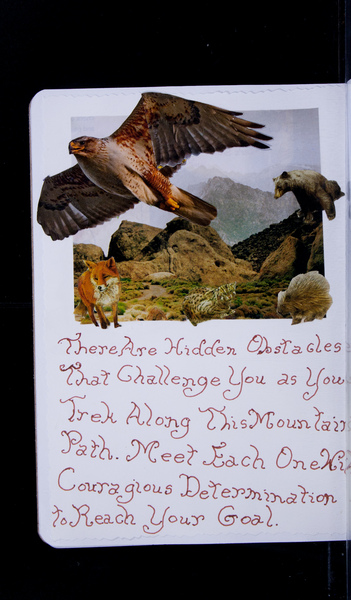 There Are Hidden Obstacles
That Challenge You as You
Trek Along This Mountain
Path. Meet Each One
Couragious Determination
to Reach Your Goal.